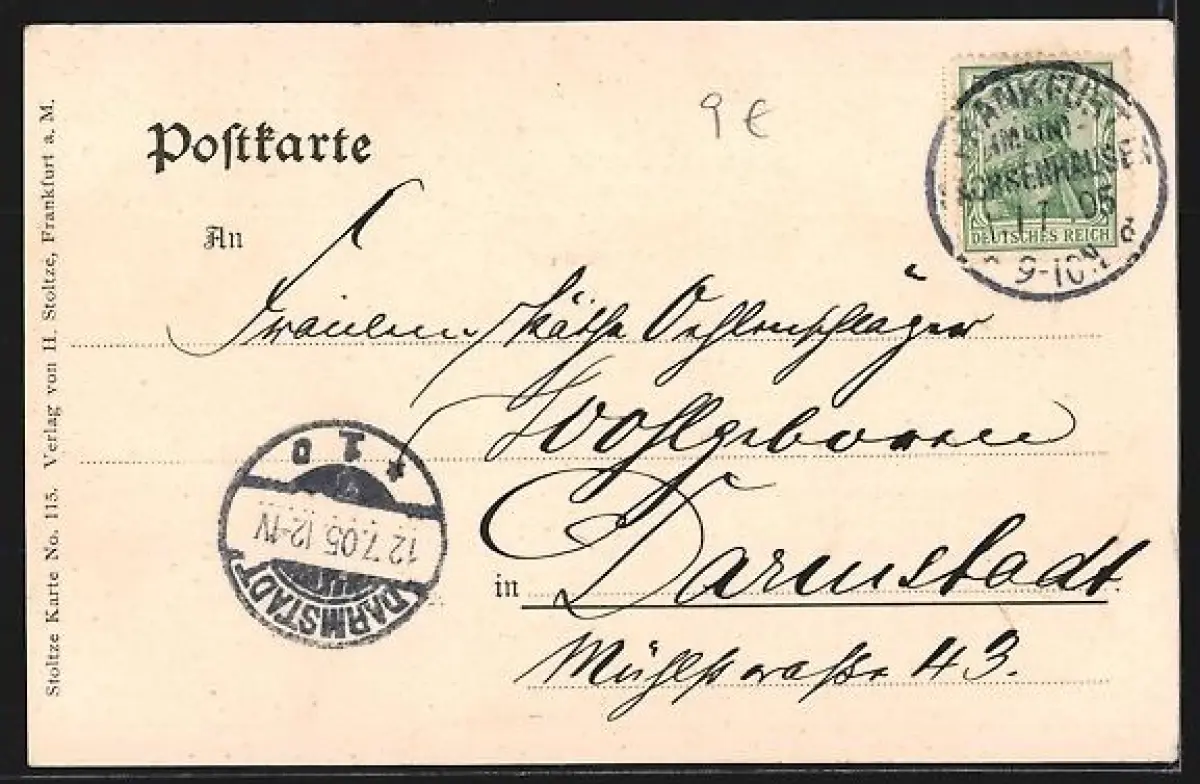 Postkarte
9 €
FRANKFURT
(MAIN)
BÖRSENHAUSE
11 7 05
9-10N
d
DEUTSCHES REICH
An
Fräulein Käthe Oehlenschläger
Wohlgeboren
in Darmstadt.
Mühlstraße 43.
DARMSTADT
12.7.05.12-1V
* 1 d
Stoltze Karte No. 115. Verlag von H. Stoltze, Frankfurt a. M.